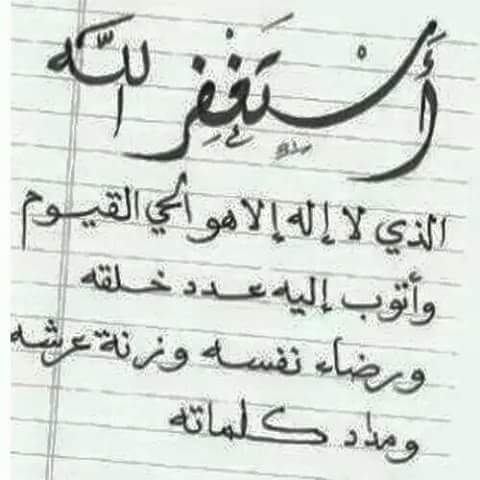 أَسْتَغْفِرُ اللَّه
الذي لا إله إلا هو الحي القيوم
وأتوب إليه عدد خلقه
ورضاء نفسه وزنة عرشه
ومداد كلماته